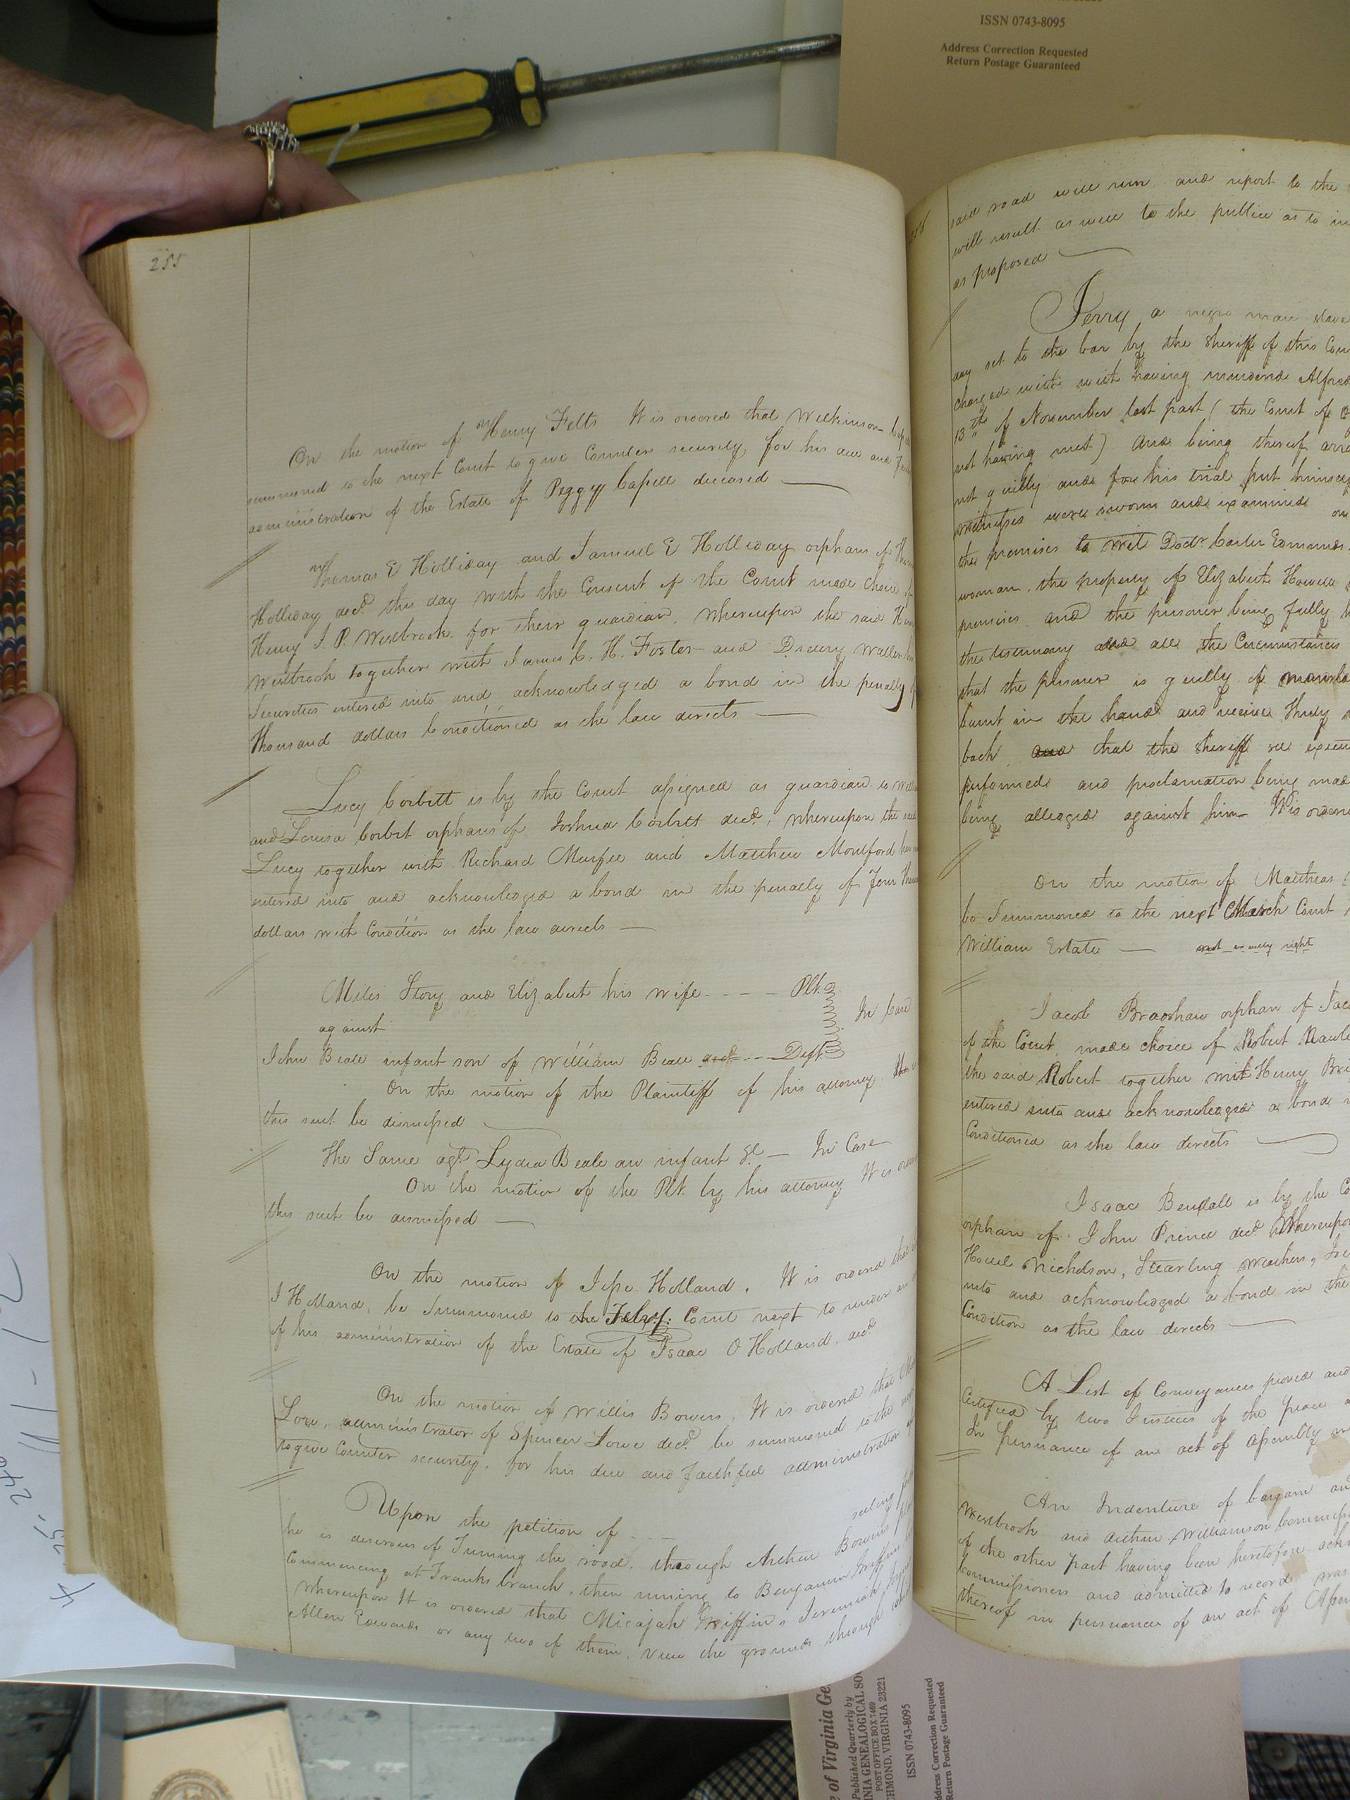 ISSN 0743-8095
Address Correction Requested
Return Postage Guaranteed
255
On the motion of Henry Felts It is ordered that Wilkinson
summoned to the next Court to give Counter security for his due and
administration of the Estate of Peggy Capell deceased
Thomas E Holliday and Samuel E Holliday orphans of
Holliday decd. this day with the Consent of the Court made choice of
Henry J. P. Westbrook for their guardian, whereupon the said
Westbrook together with James C. H. Foster and Drewry
Securities entered into and acknowledged a bond in the penalty of
thousand dollars Conditioned as the law directs
Lucy Corbitt is by the Court assigned as guardian to
and Louisa Corbit orphans of Joshua Corbitt decd., whereupon the said
Lucy together with Richard Murfee and Matthew Montford
entered into and acknowledged a bond in the penalty of Four
dollars with Condition as the law directs
Miles Story and Elizabeth his wife - - - - Plts
against
In
John Beale infant son of William Beale and - - Deft
On the motion of the Plaintiff of his attorney
this suit be dismissed
The Same agt. Lydia Beale an infant &c — In Case
On the motion of the Plt. by his attorney It is
this suit be dismissed
On the motion of Jesse Holland, It is ordered that
J Holland, be Summoned to the Feby: Court next to render an
of his administration of the Estate of Isaac O Holland decd
On the motion of Willis Bowers, It is ordered that
Low, administrator of Spencer Lowe decd. be summoned to the
to give Counter security, for his due and faithful administration
Upon the petition of - - - - seting
he is desirous of Turning the road, through Arthur Bowers
Commencing at Franks branch, then running to Benjamin Griffin
whereupon It is ordered that Micajah Griffin, Jeremiah
Allen Edwards or any two of them, view the grounds through
said road will run and report to the
will result as well to the publick as to
as proposed
Jerry a negro man slave
day set to the bar by the Sheriff of this
charged with with having murdered Alfred
13th of November last past (the Court of
not having met) and being thereof
not guilty and for his trial put himself
witnesses were sworn and examined
the premises to wit Doctr. Carter Edmunds
woman, the property of Elizabeth Howell
premises and the prisoner being fully
the testimony and all the Circumstances
that the prisoner is guilty of
burnt in the hand and receive Thirty
back and that the Sheriff
performed and proclamation being made
being alledged against him It is
On the motion of Matthias
be Summoned to the next March Court
William Estate — not
right
Jacob Bradshaw orphan of
of the Court, made choice of Robert
the said Robert together with Henry
entered into and acknowledged a bond
Conditioned as the law directs
Isaac Bendall is by the
orphan of John Prince decd Whereupon
Howel Nicholson, Stearling
into and acknowledged a bond in the
Condition as the law directs
A List of Conveyances proved and
Certified by two Justices of the peace
In pursuance of an act of Assembly
An Indenture of bargain and
Westbrook and Arthur Williamson
of the other part having been heretofore
Commissioners and admitted to record
thereof in pursuance of an act of
of Virginia
Published Quarterly by
POST OFFICE BOX 7469
VIRGINIA 23221
ISSN 0743-8095
Address Correction Requested
Return Postage Guaranteed